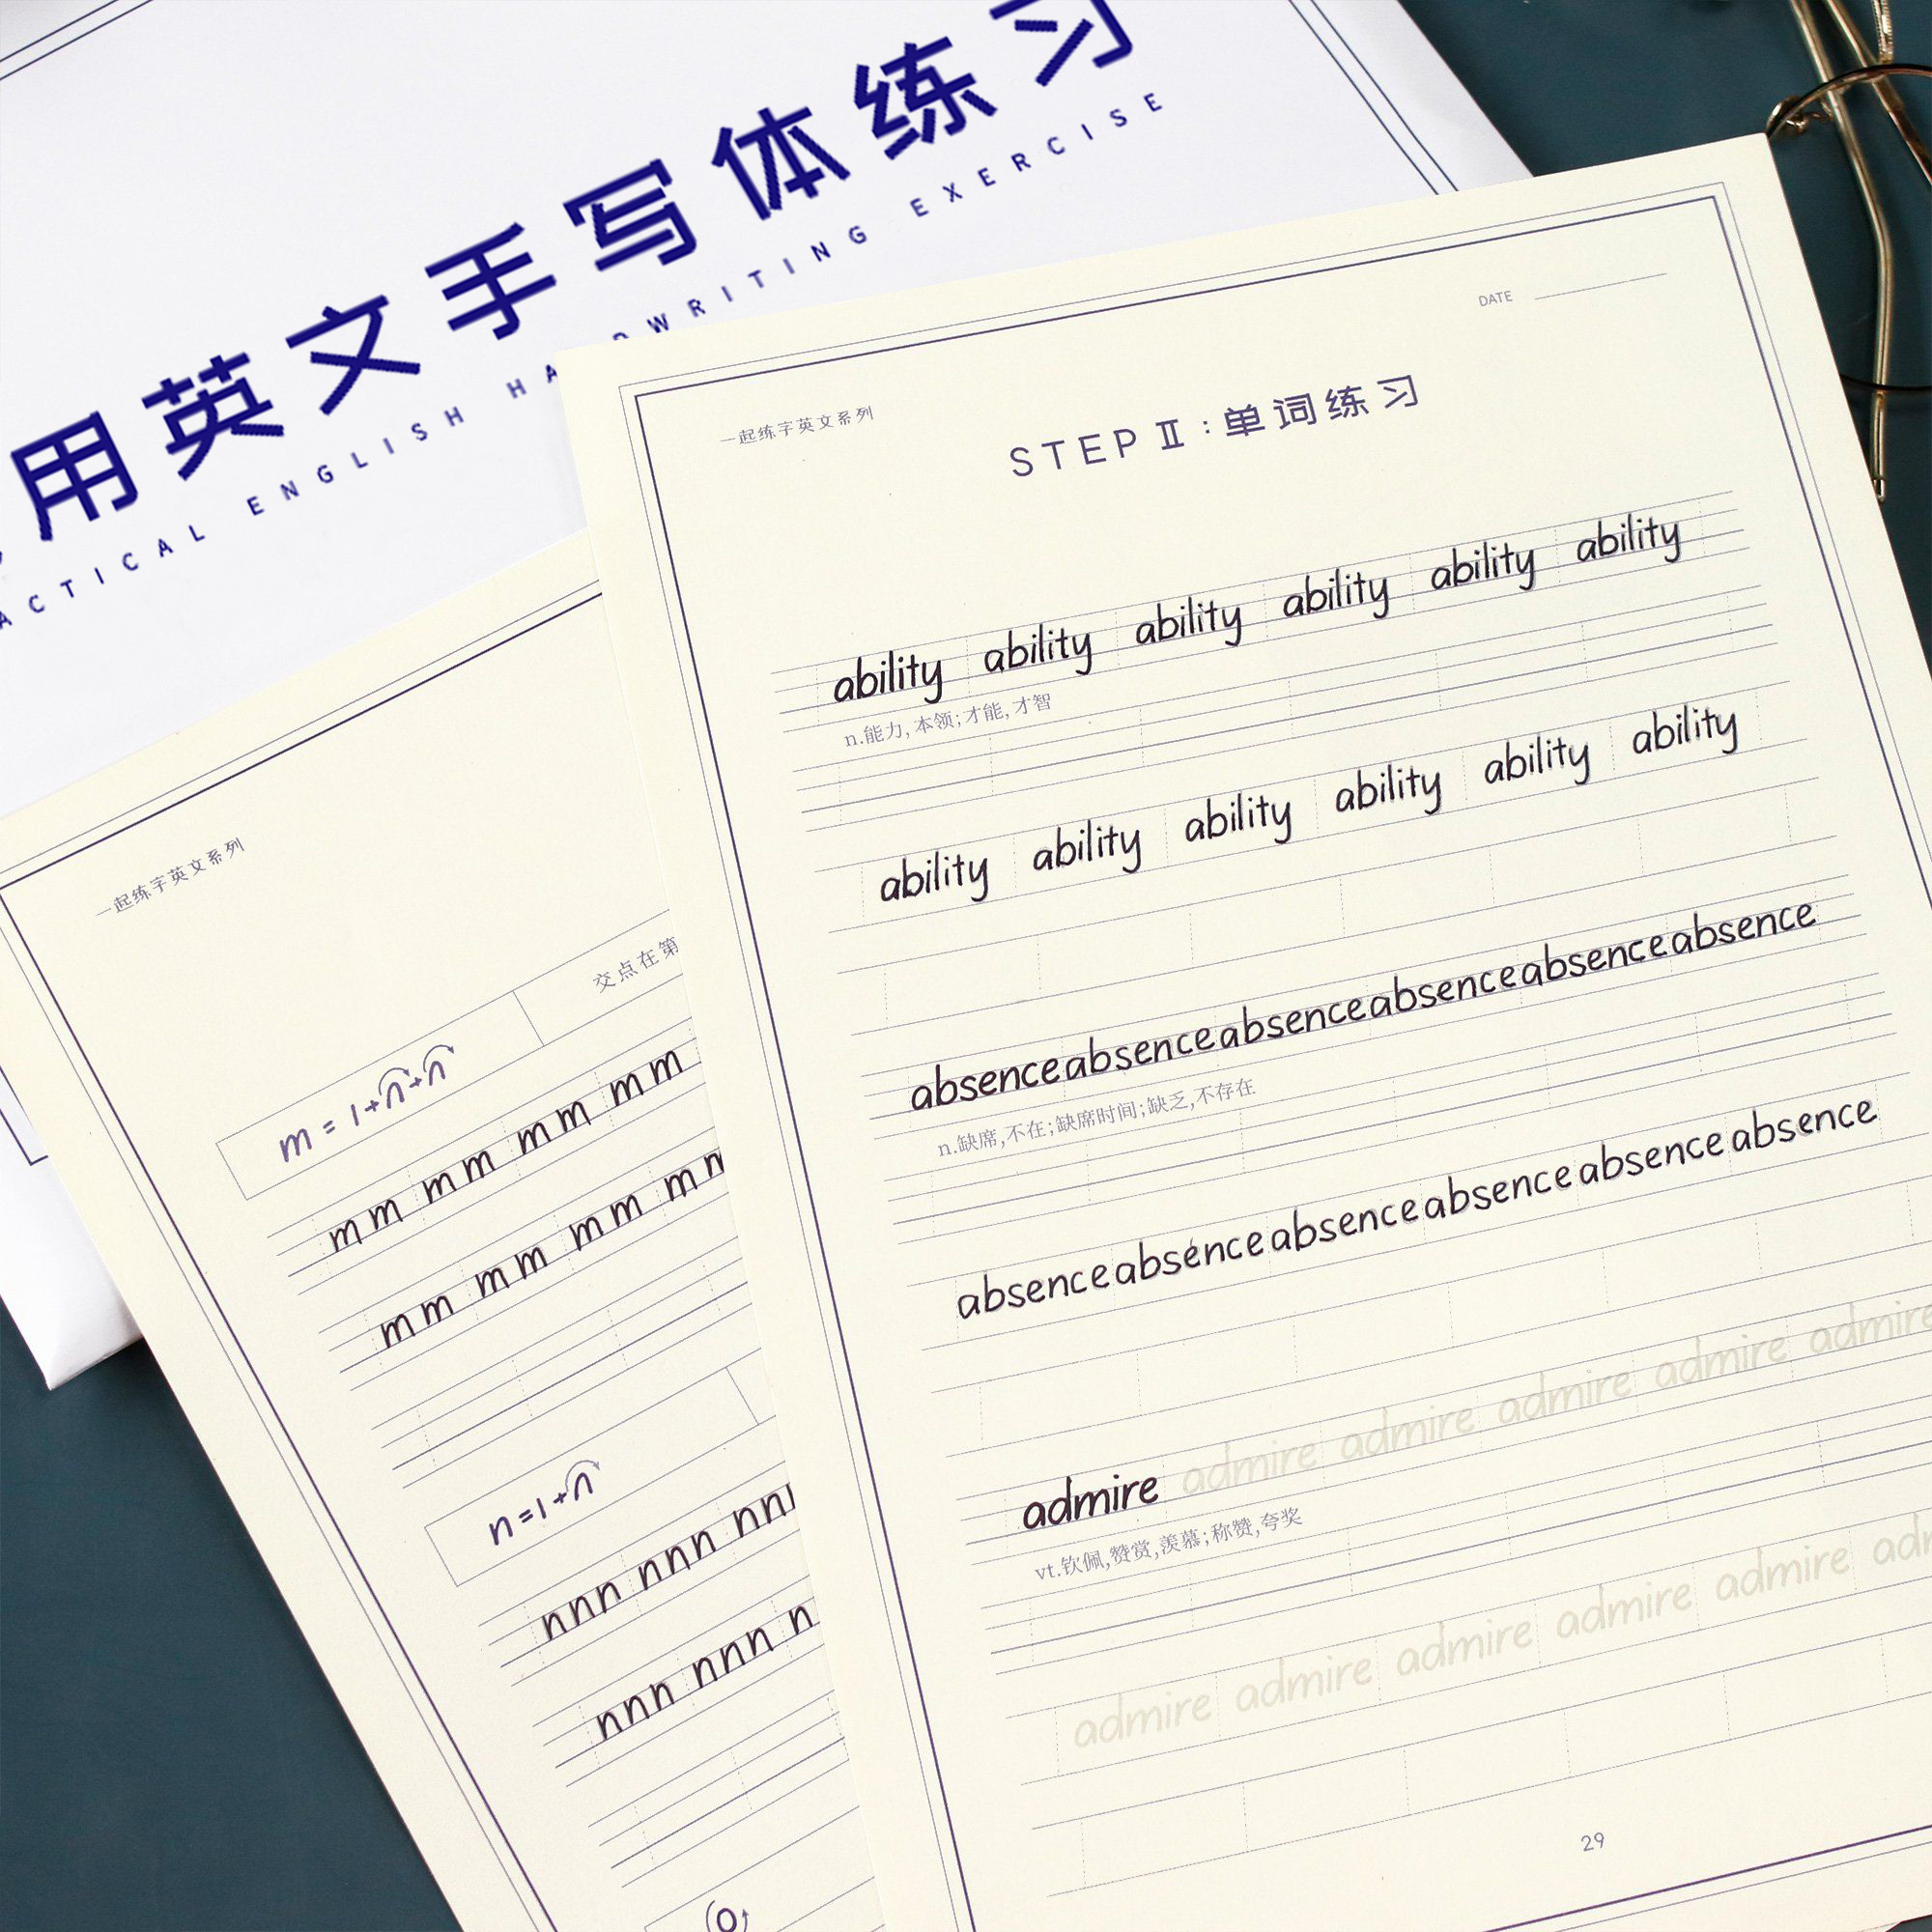 用英文手写体练习
ACTICAL ENGLISH HANDWRITING EXERCISE
一起练字英文系列
交点在第
m = 1+n+n
mm mm mm mm
mm mm mm m
n=1+n
nnn nnn nnn
nnn nnn n
DATE
一起练字英文系列
STEP Ⅱ:单词练习
ability ability ability ability ability ability
n.能力,本领;才能,才智
ability ability ability ability ability ability
absence absence absence absence absence absence
n.缺席,不在;缺席时间;缺乏,不存在
absence absence absence absence absence absence
admire admire admire admire admire admire
vt.钦佩,赞赏,羡慕;称赞,夸奖
admire admire admire admire admire adm
29